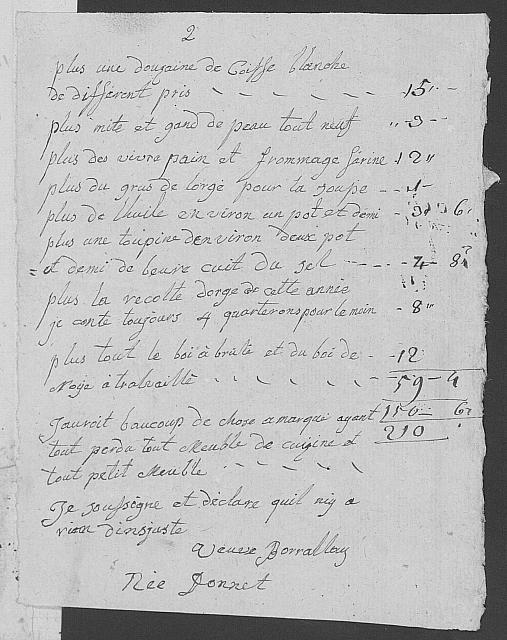 2
plus une douzaine de Coiffe blanche
de different pris - - - - - - 15 " -
plus mite et gand de peau tout neuf " 3 -
plus des vivre pain et frommage ferine 12 "
plus du grus de lorge pour la soupe - - 1 -
plus de lhuile environ un pot et demi - 3 6
plus une toupine denviron deux pot
et demi de beure cuit du sel - - - 4 - 8
plus la recolte dorge de cette annee
je conte toujours 4 quarterons pour le moin - 8 "
plus tout le boi a brule et du boi de - 12
Noye a travaille - - - - - 59 - 4
Jauroit baucoup de chose a marque ayant 156 6
tout perdu tout Meuble de cuigine et 210
tout petit Meuble - - - - -
Je soussigne et declare quil niy a
rien dinsjuste
Veuve Borrallay
Née Donnet